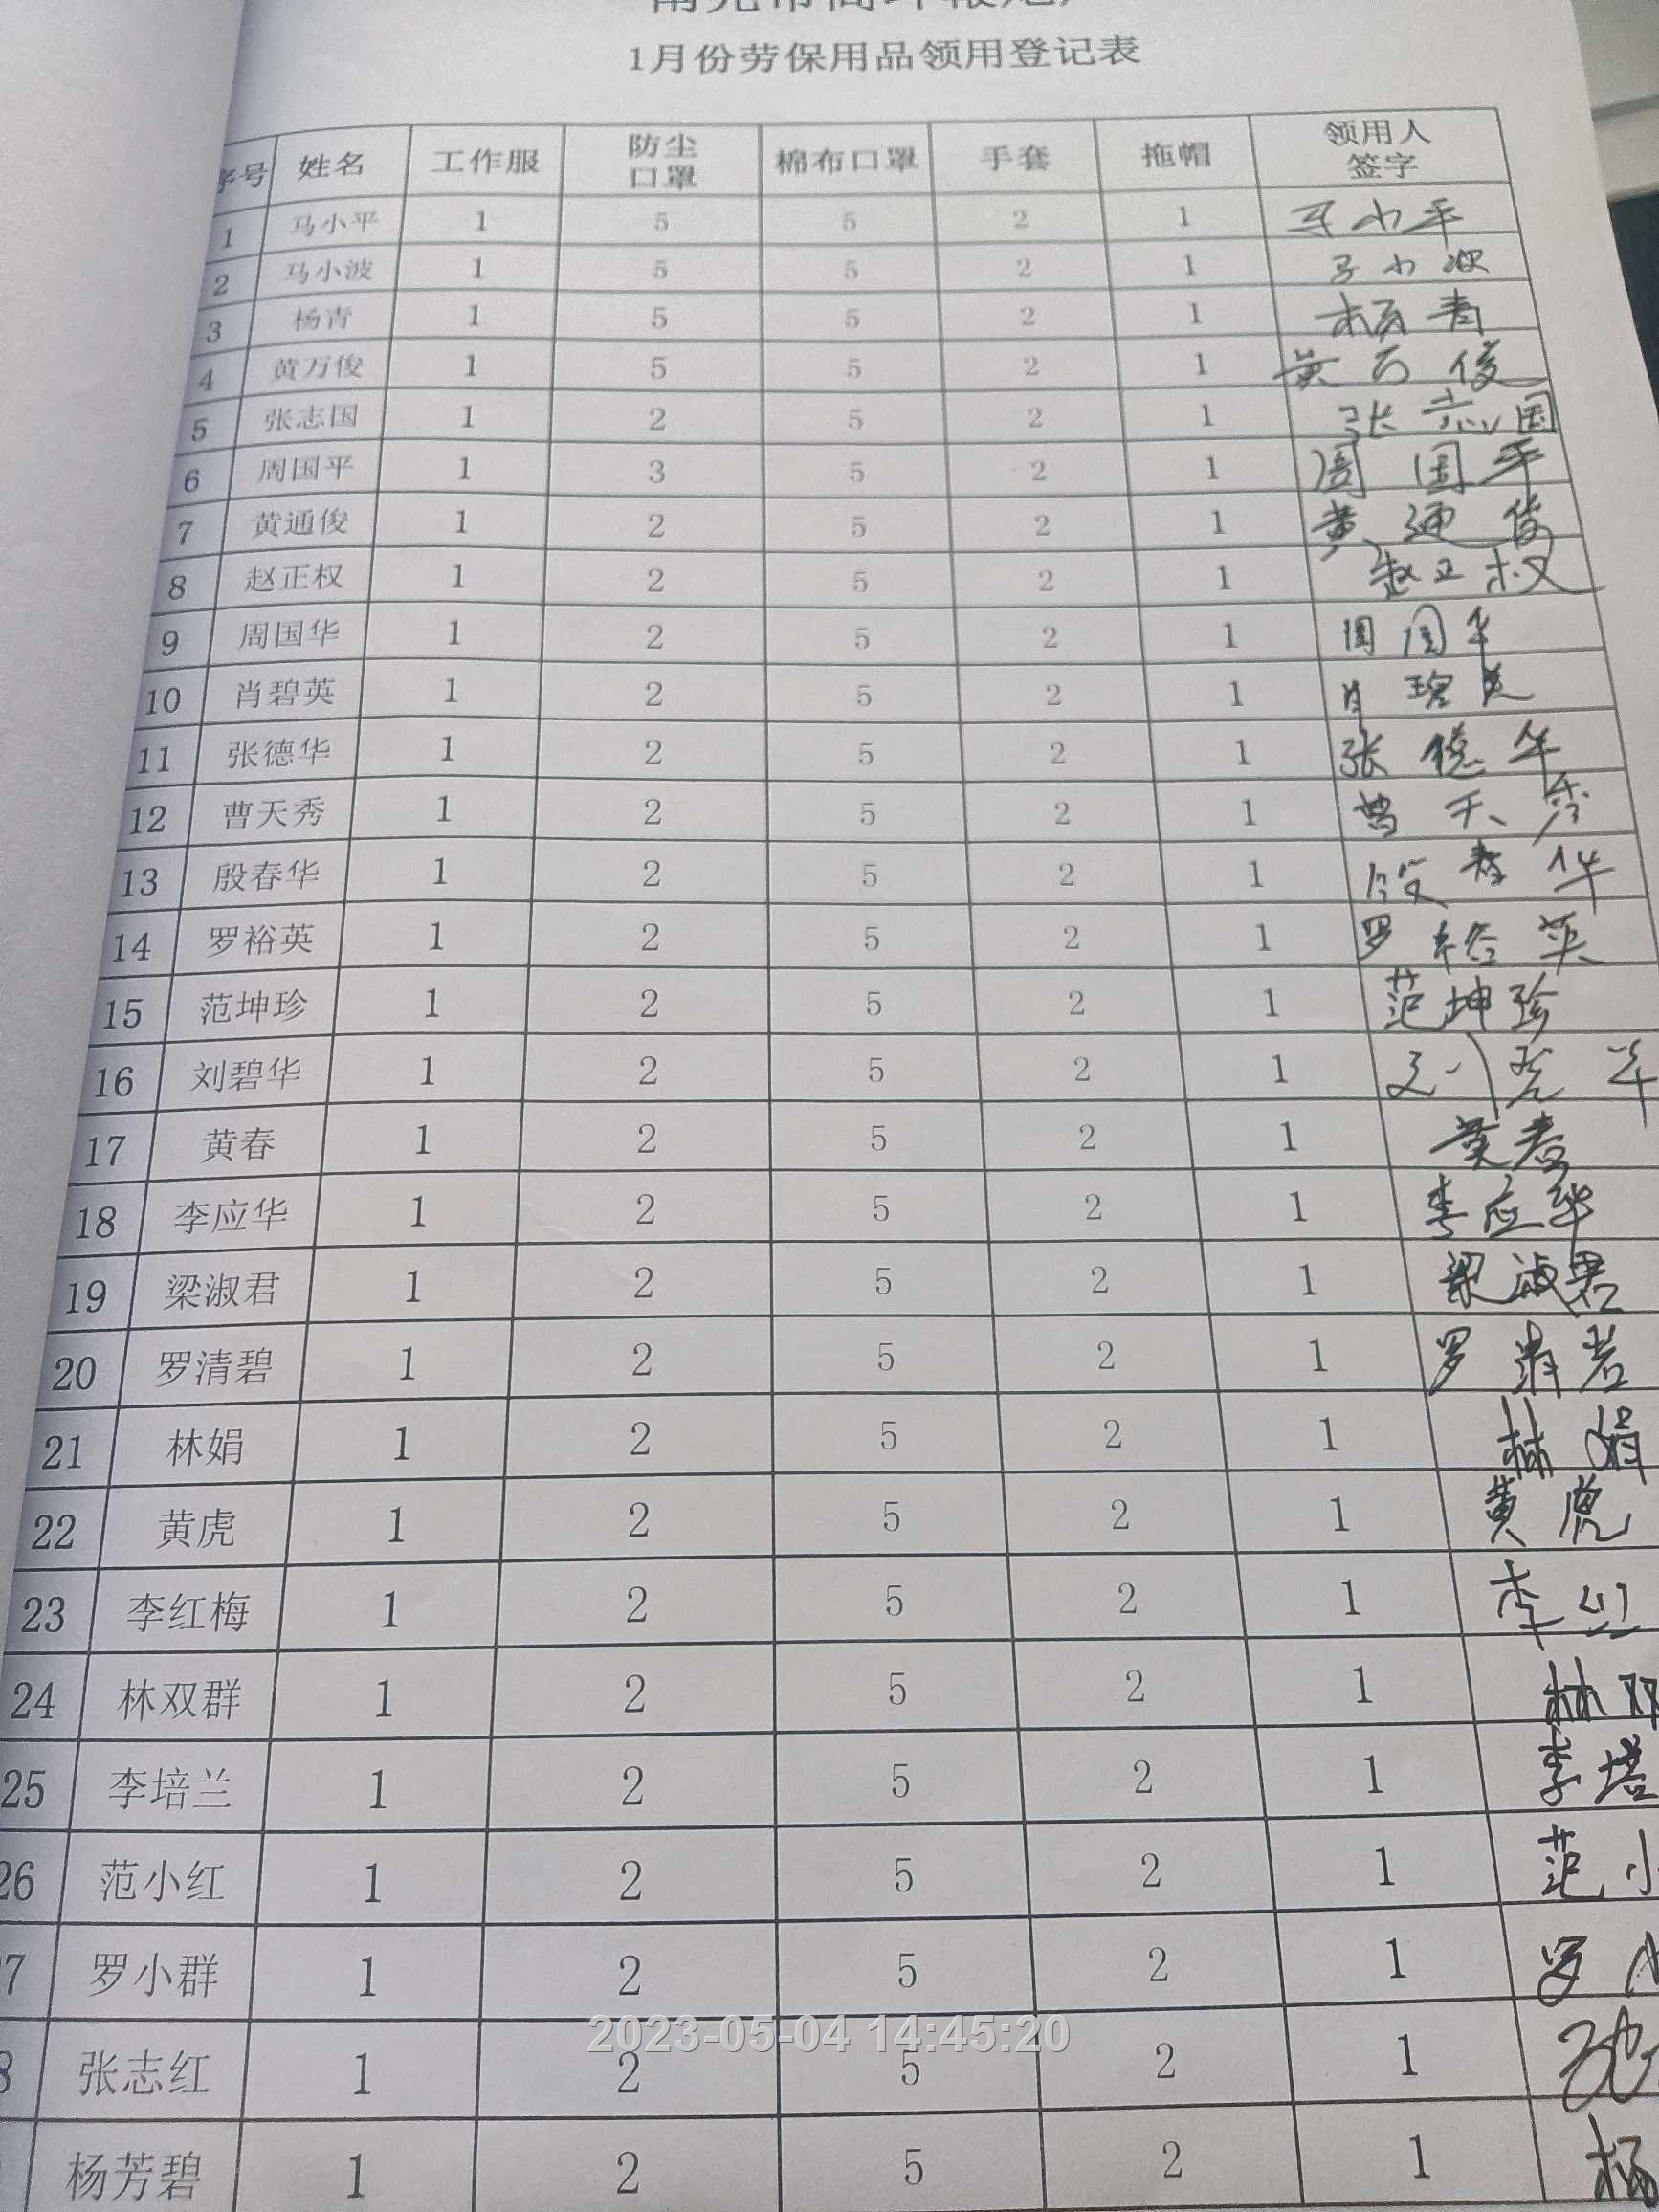 1月份劳保用品领用登记表
序号 姓名 工作服 防尘口罩 棉布口罩 手套 拖帽 领用人签字
1 马小平 1 5 5 2 1 马小平
2 马小波 1 5 5 2 1 马小波
3 杨青 1 5 5 2 1 杨青
4 黄万俊 1 5 5 2 1 黄万俊
5 张志国 1 2 5 2 1 张志国
6 周国平 1 3 5 2 1 周国平
7 黄通俊 1 2 5 2 1 黄通俊
8 赵正权 1 2 5 2 1 赵正权
9 周国华 1 2 5 2 1 周国华
10 肖碧英 1 2 5 2 1 肖碧英
11 张德华 1 2 5 2 1 张德华
12 曹天秀 1 2 5 2 1 曹天秀
13 殷春华 1 2 5 2 1 殷春华
14 罗裕英 1 2 5 2 1 罗裕英
15 范坤珍 1 2 5 2 1 范坤珍
16 刘碧华 1 2 5 2 1 刘碧华
17 黄春 1 2 5 2 1 黄春
18 李应华 1 2 5 2 1 李应华
19 梁淑君 1 2 5 2 1 梁淑君
20 罗清碧 1 2 5 2 1 罗清碧
21 林娟 1 2 5 2 1 林娟
22 黄虎 1 2 5 2 1 黄虎
23 李红梅 1 2 5 2 1 李红
24 林双群 1 2 5 2 1 林双
25 李培兰 1 2 5 2 1 李培
26 范小红 1 2 5 2 1 范小
7 罗小群 1 2 5 2 1 罗小
8 张志红 1 2 5 2 1
杨芳碧 1 2 5 2 1 杨
2023-05-04 14:45:20